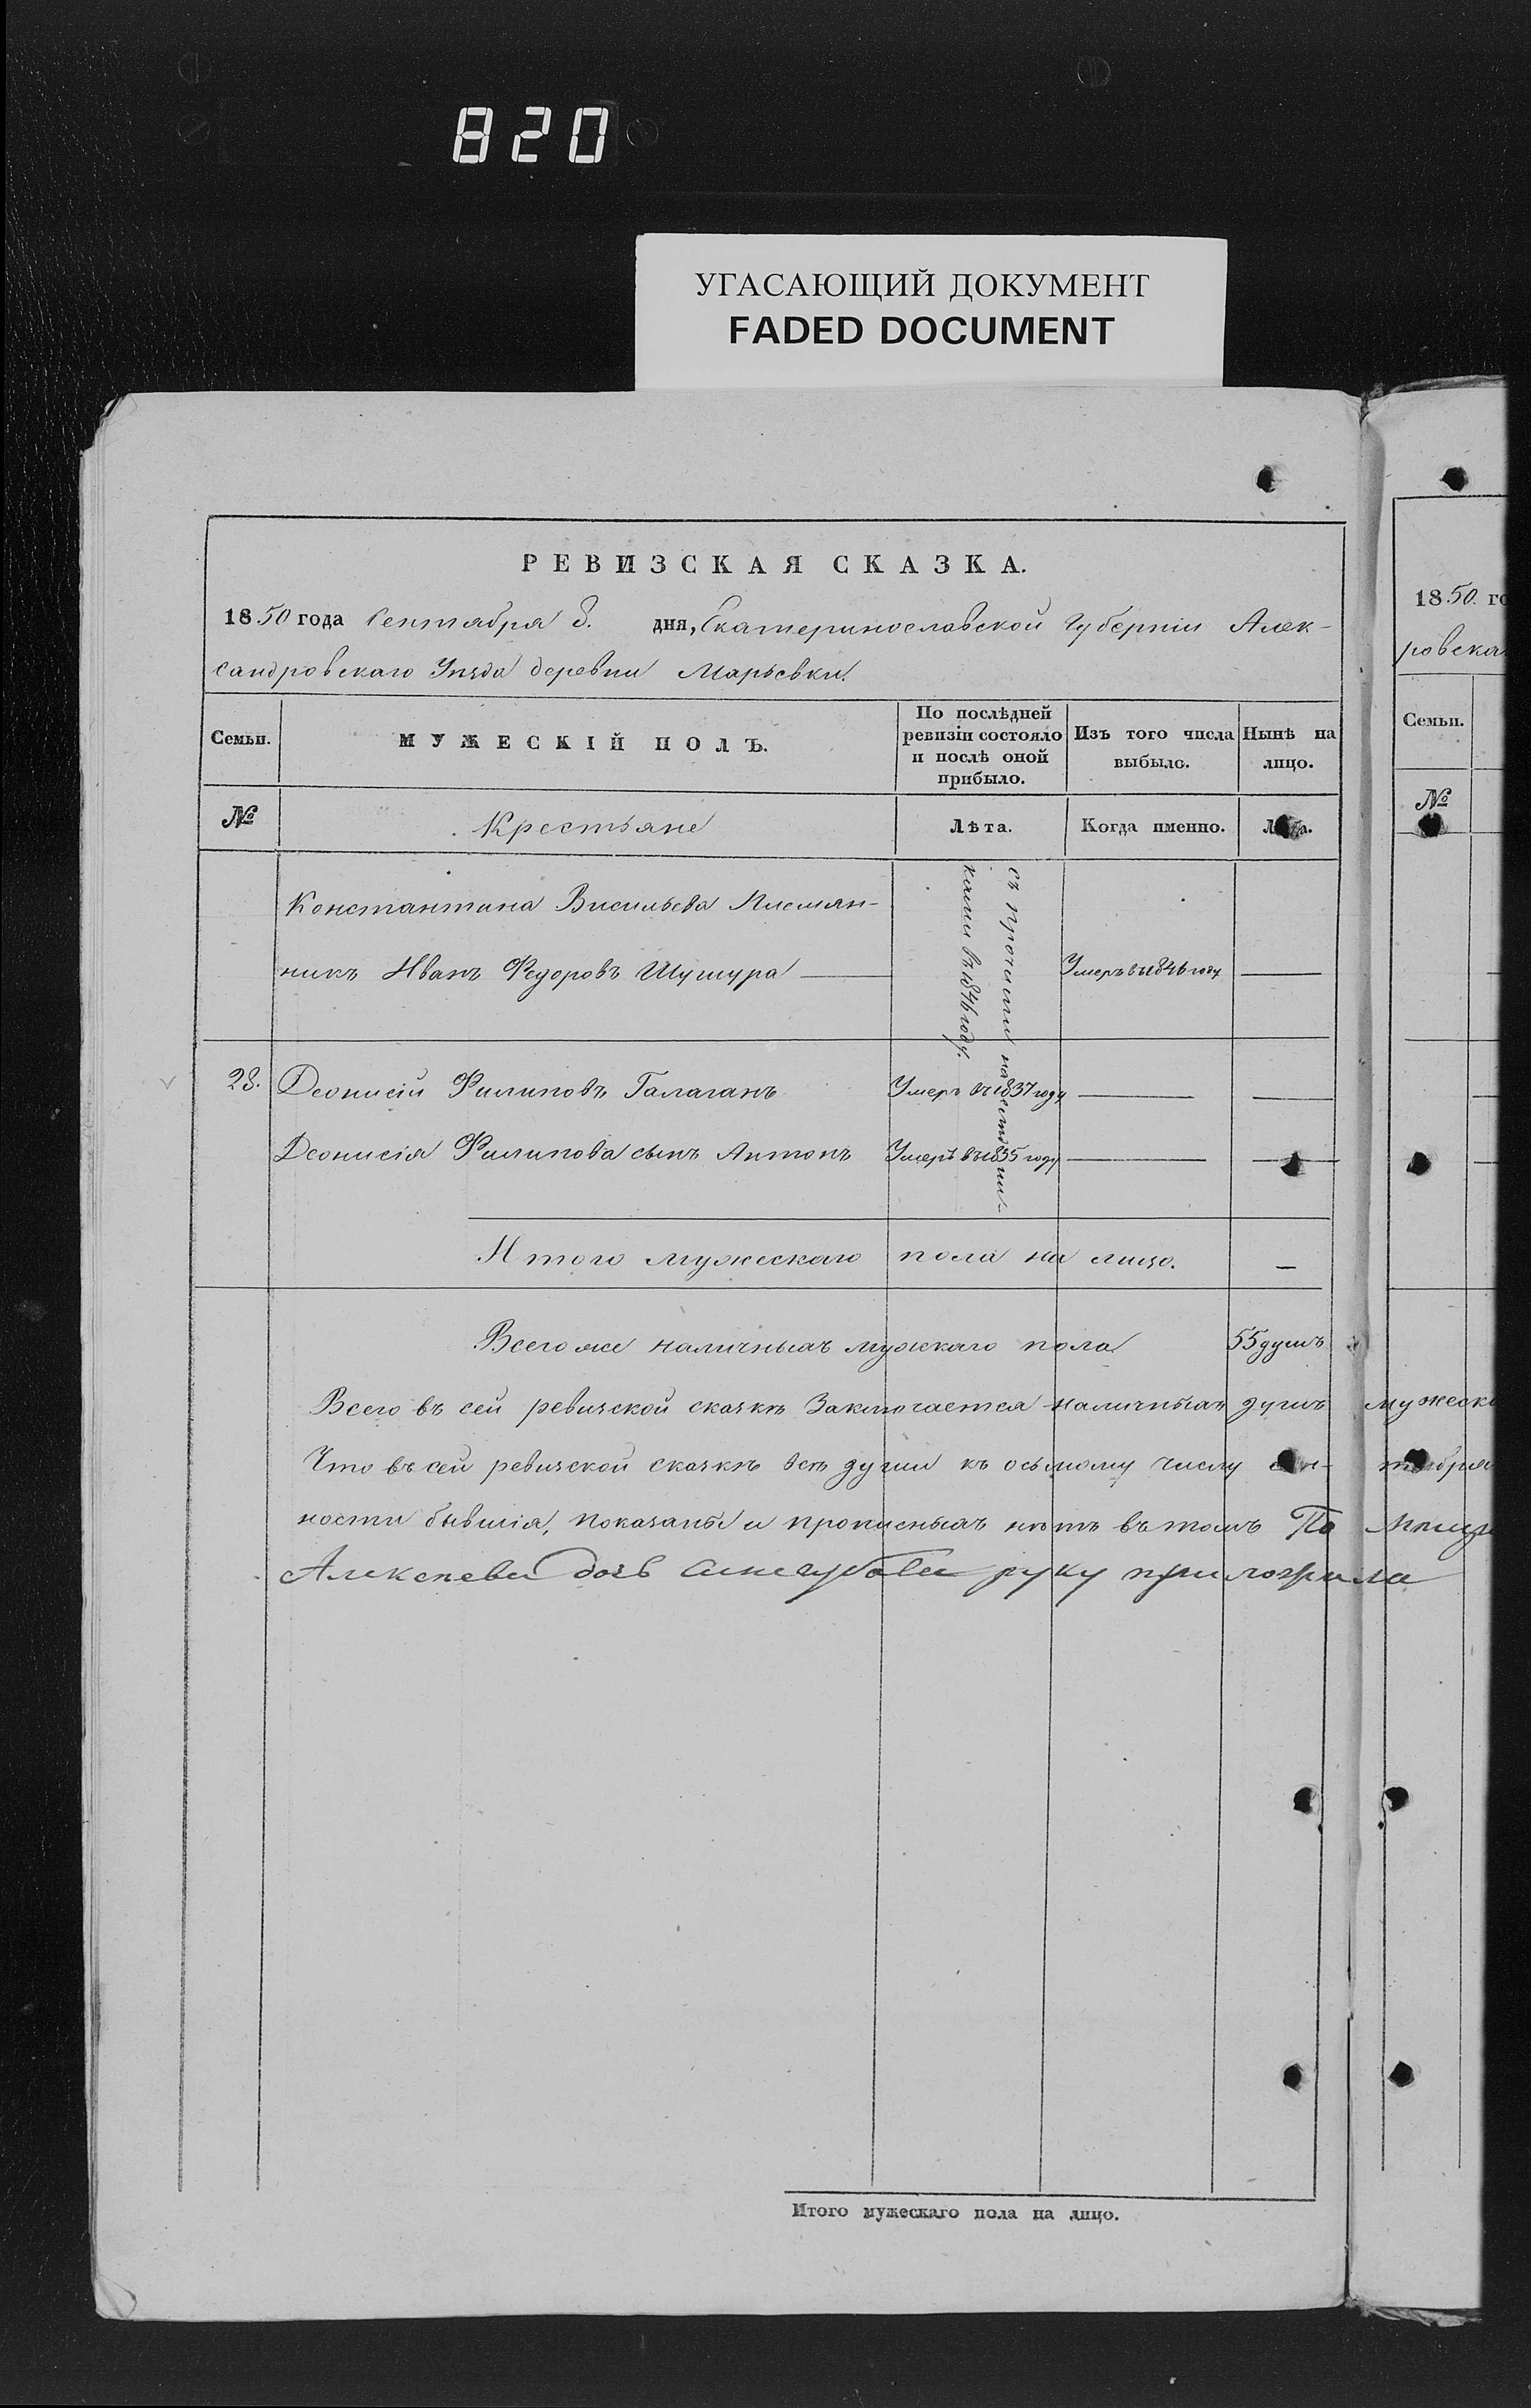 820
УГАСАЮЩИЙ ДОКУМЕНТ
FADED DOCUMENT
РЕВИЗСКАЯ СКАЗКА.
1850 года Сентября 8. дня, Екатеринославской Губерніи Алек-
сандровскаго Уѣзда деревни Марьевки.
Семьи.
МУЖЕСКІЙ ПОЛЪ.
По послѣдней ревизіи состояло и послѣ оной прибыло.
Изъ того числа выбыло.
Нынѣ на лицо.
№
Крестьяне
Лѣта.
Когда именно.
Лѣта.
Константина Васильева Племян-
никъ Иванъ Федоровъ Шушура
Умеръ в 1846 году
съ прочими
ками въ 1846 году.
28. Деонисій Филиповъ Галаганъ Умеръ въ 1837 году
Деонисія Филипова сынъ Антонъ Умеръ въ 1835 году
Итого мужескаго пола на лицо. —
Всего же наличныхъ мужскаго пола 55 душъ
Всего въ сей ревизской сказкѣ Заключается наличныхъ душъ мужеска
Что въ сей ревизской сказкѣ всѣ души къ осьмому числу сен- тября
ности бывшія, показаны и прописныхъ нѣтъ въ томъ По
Алексеева дочь руку приложила
Итого мужескаго пола на лицо.
1850 го
ровска
Семьи.
№